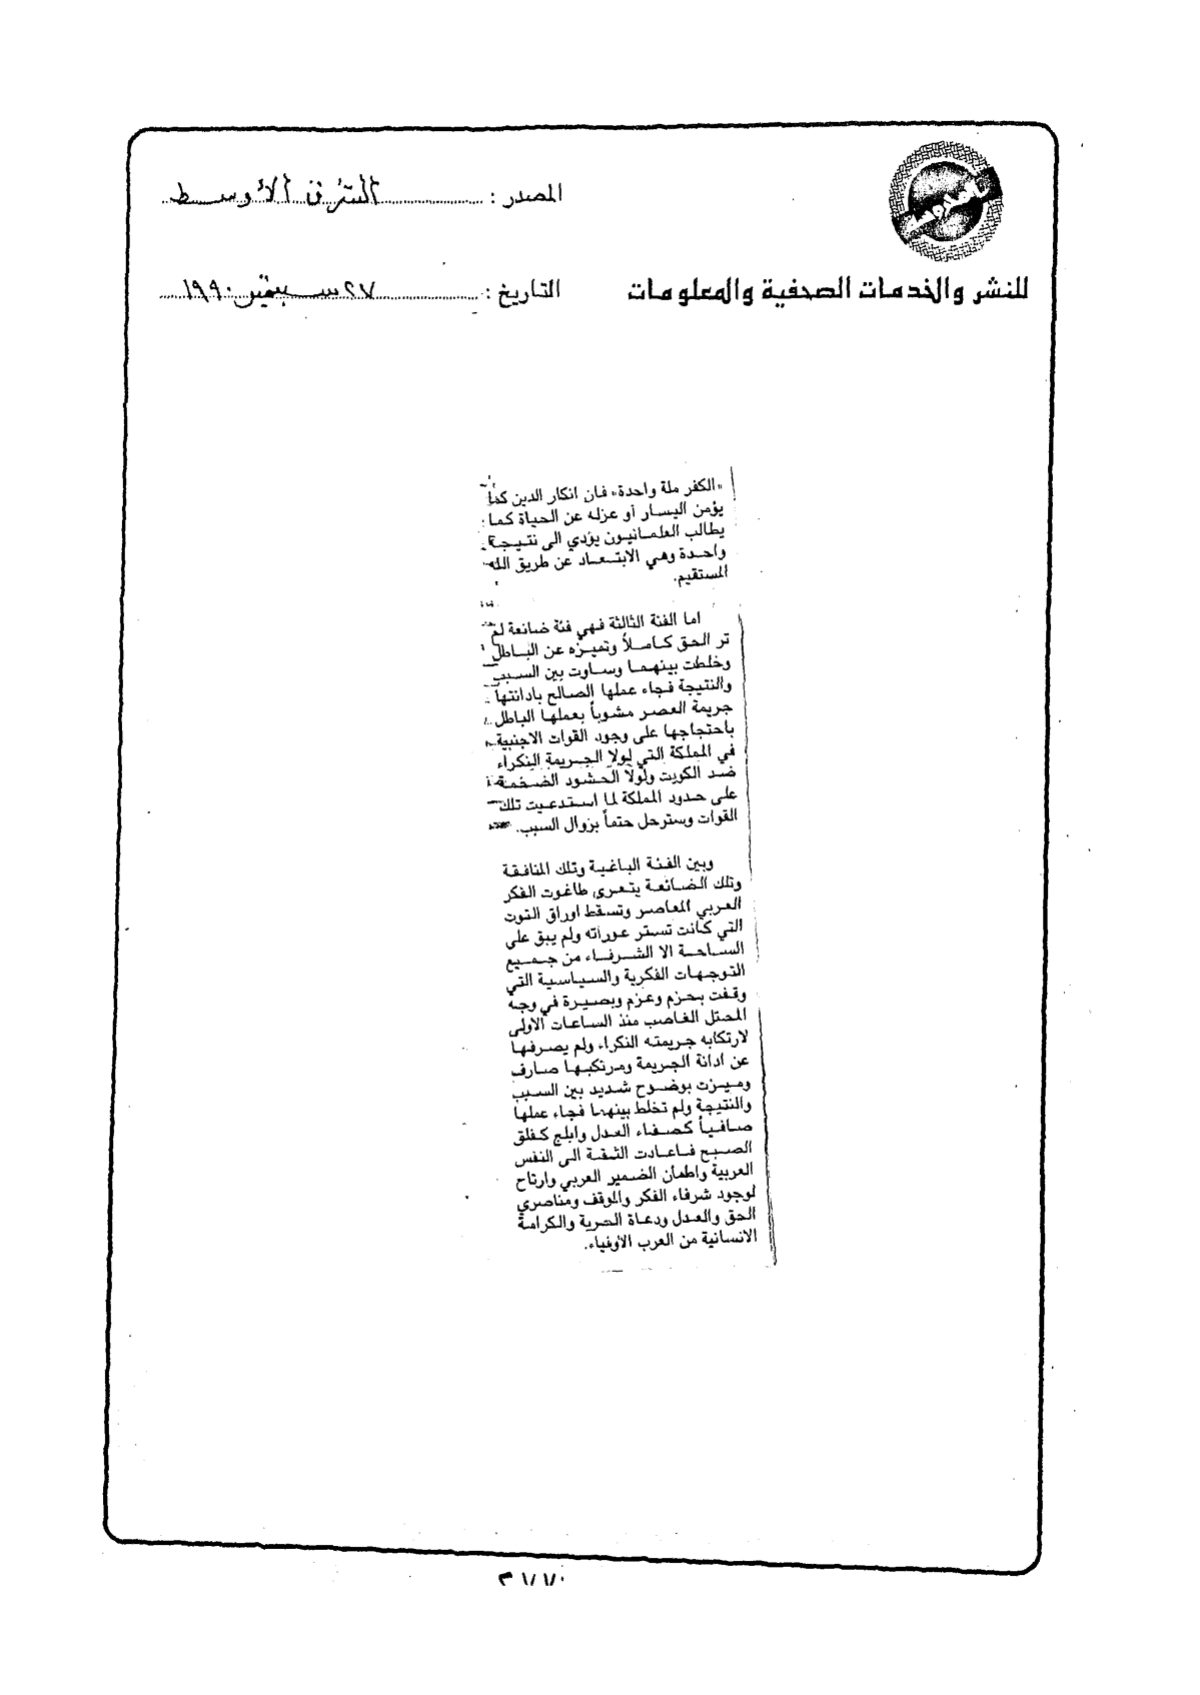 المصدر : الشرق الأوسط
للنشر والخدمات الصحفية والمعلومات
التاريخ : ٢٧ سبتمبر ١٩٩٠
«الكفر ملة واحدة» فان انكار الدين كما
يؤمن اليسار أو عزله عن الحياة كما
يطالب العلمانيون يؤدي الى نتيجة
واحدة وهي الابتعاد عن طريق الله
المستقيم.
اما الفئة الثالثة فهي فئة ضائعة لم
تر الحق كاملاً وتميزه عن الباطل
وخلطت بينهما وساوت بين السبب
والنتيجة فجاء عملها الصالح بادانتها
جريمة العصر مشوباً بعملها الباطل
باحتجاجها على وجود القوات الاجنبية
في المملكة التي لولا الجريمة النكراء
ضد الكويت ولولا الحشود الضخمة
على حدود المملكة لما استدعيت تلك
القوات وسترحل حتماً بزوال السبب.
وبين الفئة الباغية وتلك المنافقة
وتلك الضائعة يتعرى طاغوت الفكر
العربي المعاصر وتسقط اوراق التوت
التي كانت تستر عوراته ولم يبق على
الساحة الا الشرفاء من جميع
التوجهات الفكرية والسياسية التي
وقفت بحزم وعزم وبصيرة في وجه
المحتل الغاصب منذ الساعات الاولى
لارتكابه جريمته النكراء ولم يصرفها
عن ادانة الجريمة ومرتكبها صارف
وميزت بوضوح شديد بين السبب
والنتيجة ولم تخلط بينهما فجاء عملها
صافياً كصفاء العدل وابلج كفلق
الصبح فاعادت الثقة الى النفس
العربية واطمان الضمير العربي وارتاح
لوجود شرفاء الفكر والموقف ومناصري
الحق والعدل ودعاة الحرية والكرامة
الانسانية من العرب الأوفياء.